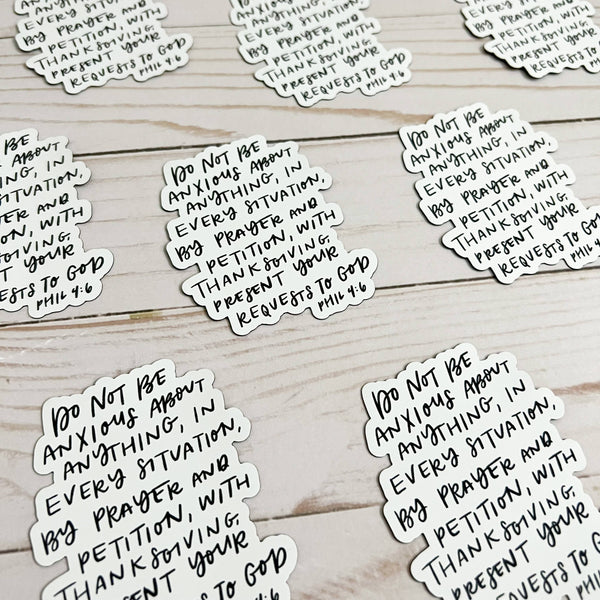 EVERY SITUATION,
BY PRAYER AND
PETITION, WITH
THANKSGIVING,
PRESENT YOUR
REQUESTS TO GOD
PHIL 4:6
EVERY SITUATION,
BY PRAYER AND
PETITION, WITH
THANKSGIVING,
PRESENT YOUR
REQUESTS TO GOD
PHIL 4:6
BY PRAYER AND
PETITION, WITH
THANKSGIVING,
PRESENT YOUR
REQUESTS TO GOD
BE
ABOUT
IN
SITUATION,
AND
WITH
YOUR
TO GOD
PHIL 4:6
DO NOT BE
ANXIOUS ABOUT
ANYTHING, IN
EVERY SITUATION,
BY PRAYER AND
PETITION, WITH
THANKSGIVING,
PRESENT YOUR
REQUESTS TO GOD
PHIL 4:6
DO NOT BE
ANXIOUS ABOUT
ANYTHING, IN
EVERY SITUATION,
BY PRAYER AND
PETITION, WITH
THANKSGIVING,
PRESENT YOUR
REQUESTS TO GOD
PHIL
DO NOT BE
ANXIOUS ABOUT
ANYTHING, IN
EVERY SITUATION,
BY PRAYER AND
PETITION, WITH
THANKSGIVING,
PRESENT YOUR
TO GOD
DO NOT BE
ANXIOUS ABOUT
ANYTHING, IN
EVERY SITUATION,
BY PRAYER AND
PETITION, WITH
THANKSGIVING,
PRESENT YOUR
TO